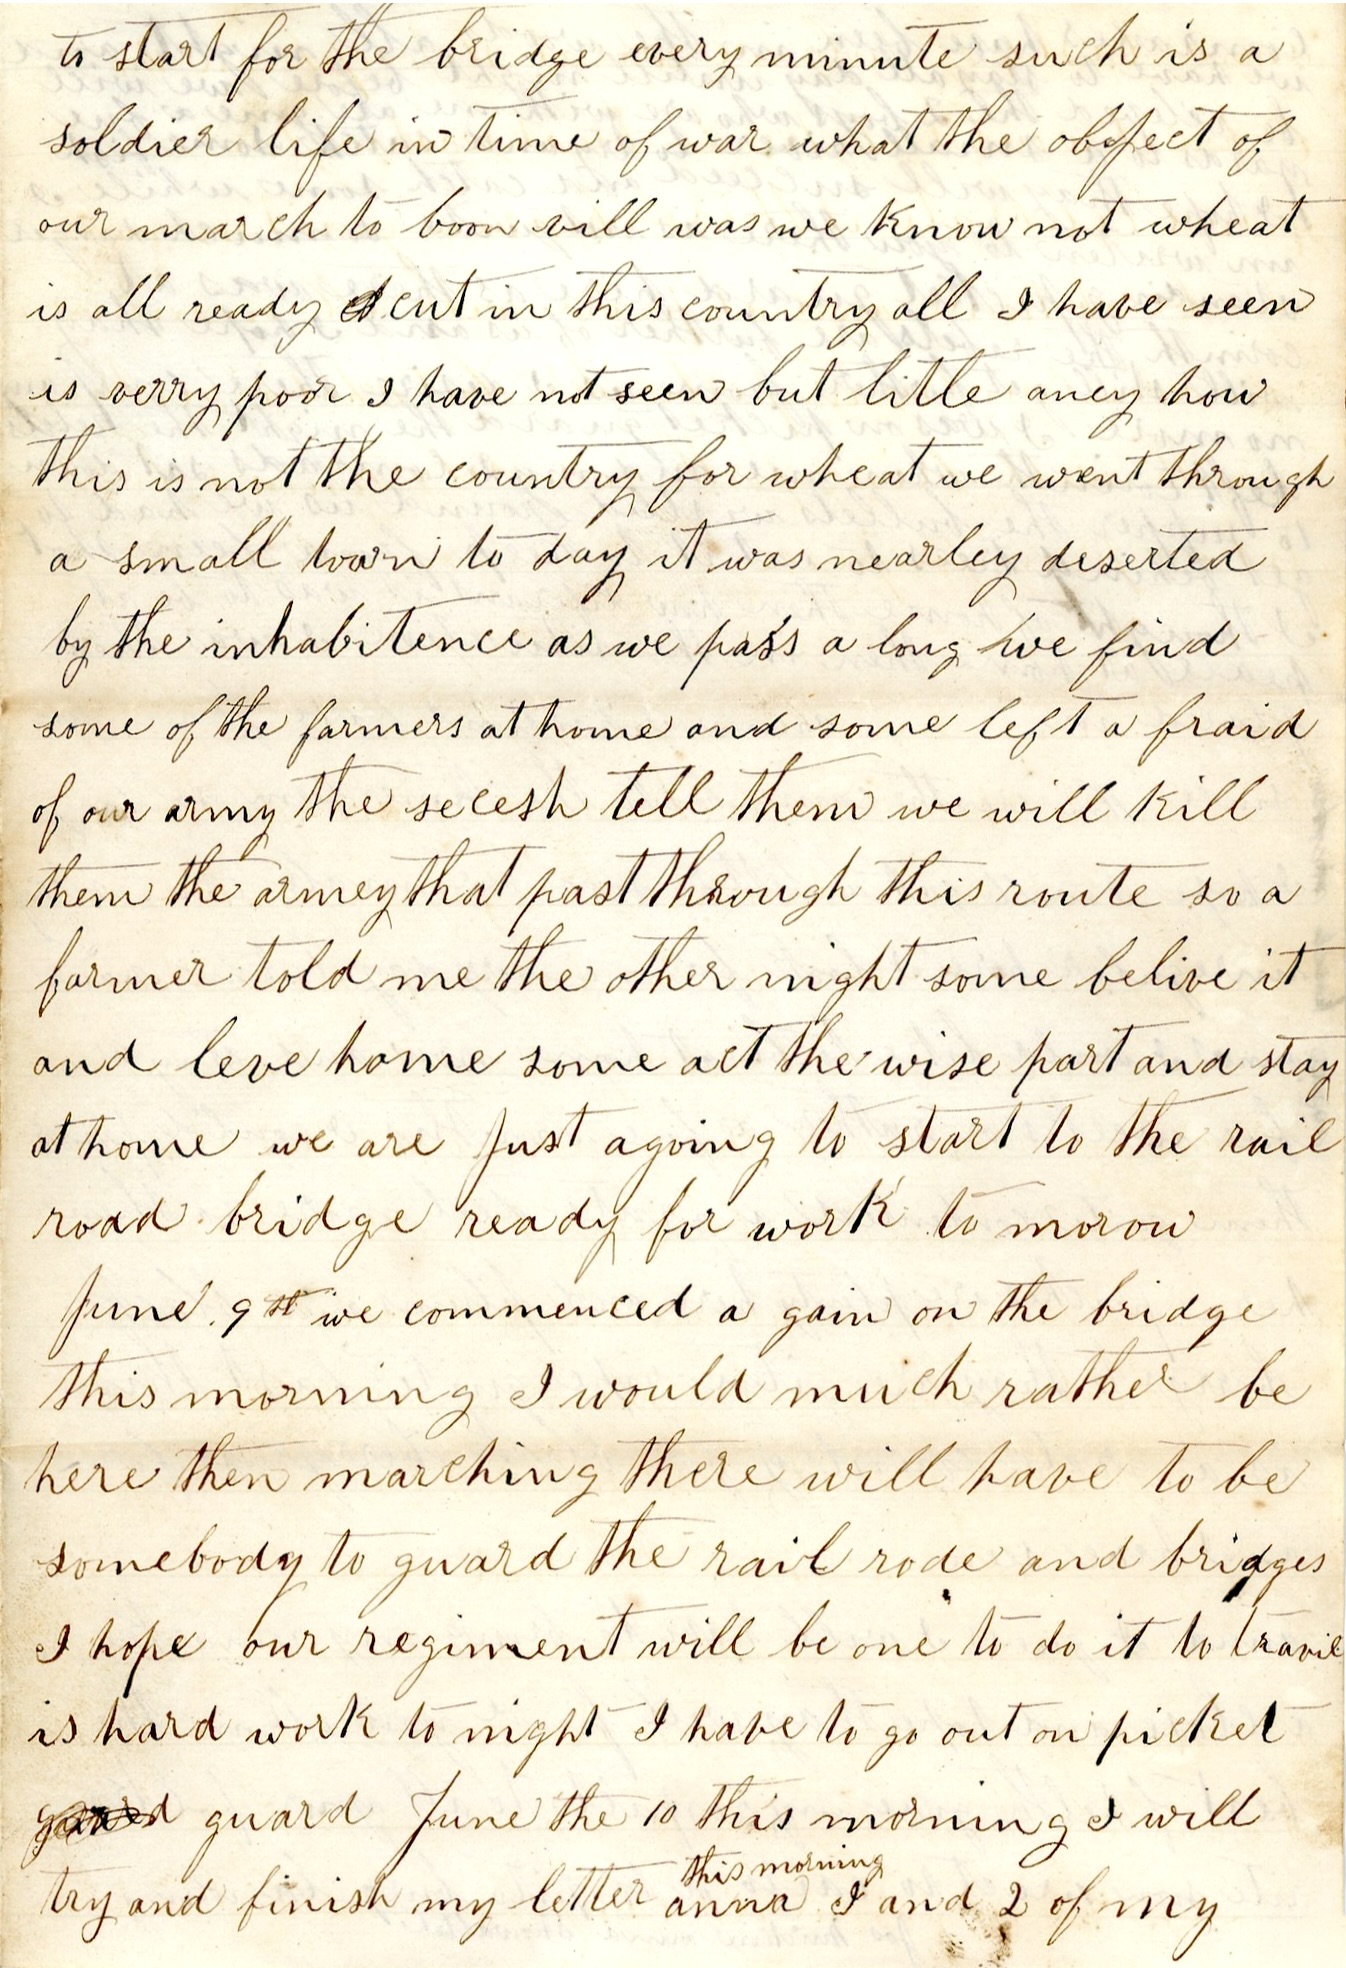 to start for the bridge every minute such is a
soldier life in time of war what the object of
our march to boon vill was we know not wheat
is all ready cut in this country all I have seen
is verry poor I have not seen but little aney how
this is not the country for wheat we went through
a small town to day it was nearley deserted
by the inhabitence as we pass a long we find
some of the farmers at home and some left a fraid
of our army the secesh tell them we will kill
them the armey that past through this route so a
farmer told me the other night some belive it
and leve home some act the wise part and stay
at home we are Just agoing to start to the rail
road bridge ready for work to morow
June 9st we commenced a gain on the bridge
this morning I would much rather be
here then marching there will have to be
somebody to guard the rail rode and bridges
I hope our regiment will be one to do it to travil
is hard work to night I have to go out on picket
guard June the 10 this morning I will
this morning
try and finish my letter anna I and 2 of my